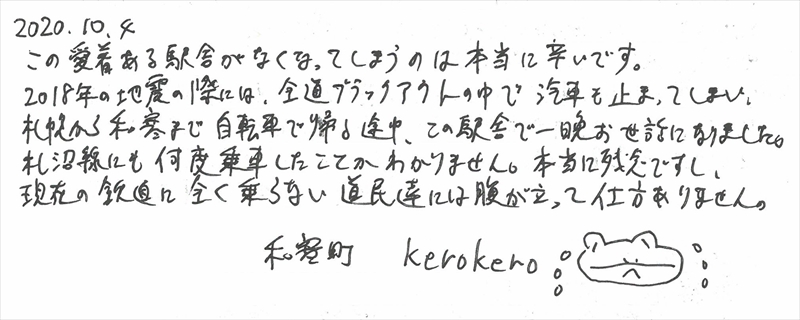 2020.10.4
この愛着ある駅舎がなくなってしまうのは本当に辛いです。
2018年の地震の際には、全道ブラックアウトの中で汽車も止まってしまい、
札幌から和寒まで自転車で帰る途中、この駅舎で一晩お世話になりました。
札沼線にも何度乗車したことかわかりません。本当に残念ですし、
現在の鉄道に全く乗らない道民達には腹が立って仕方ありません。
和寒町 kerokero